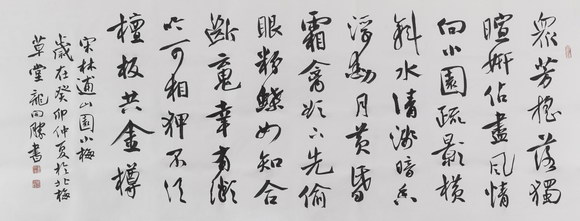 眾芳摇落獨
暄妍佔盡風情
向小園疏影橫
斜水清浅暗香
浮動月黄昏
霜禽欲下先偷
眼粉蝶如知合
斷魂幸有微
吟可相狎不須
檀板共金樽
宋林逋山園小梅
歲在癸卯仲夏於北梅
草堂龍勝書